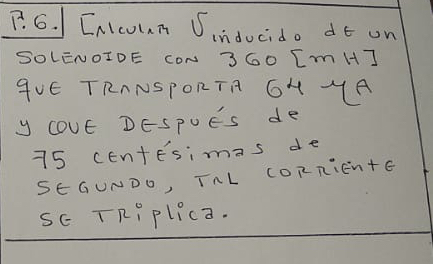 P.6. CALCULAR V inducido de un
SOLENOIDE CON 360 [mH]
QUE TRANSPORTA 64 μA
y QUE DESPUÉS de
75 centésimas de
SEGUNDO, TAL CORRIENTE
SE TRiplica.